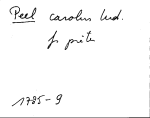 Peel carolus lud.
fs prêtre
1785-9